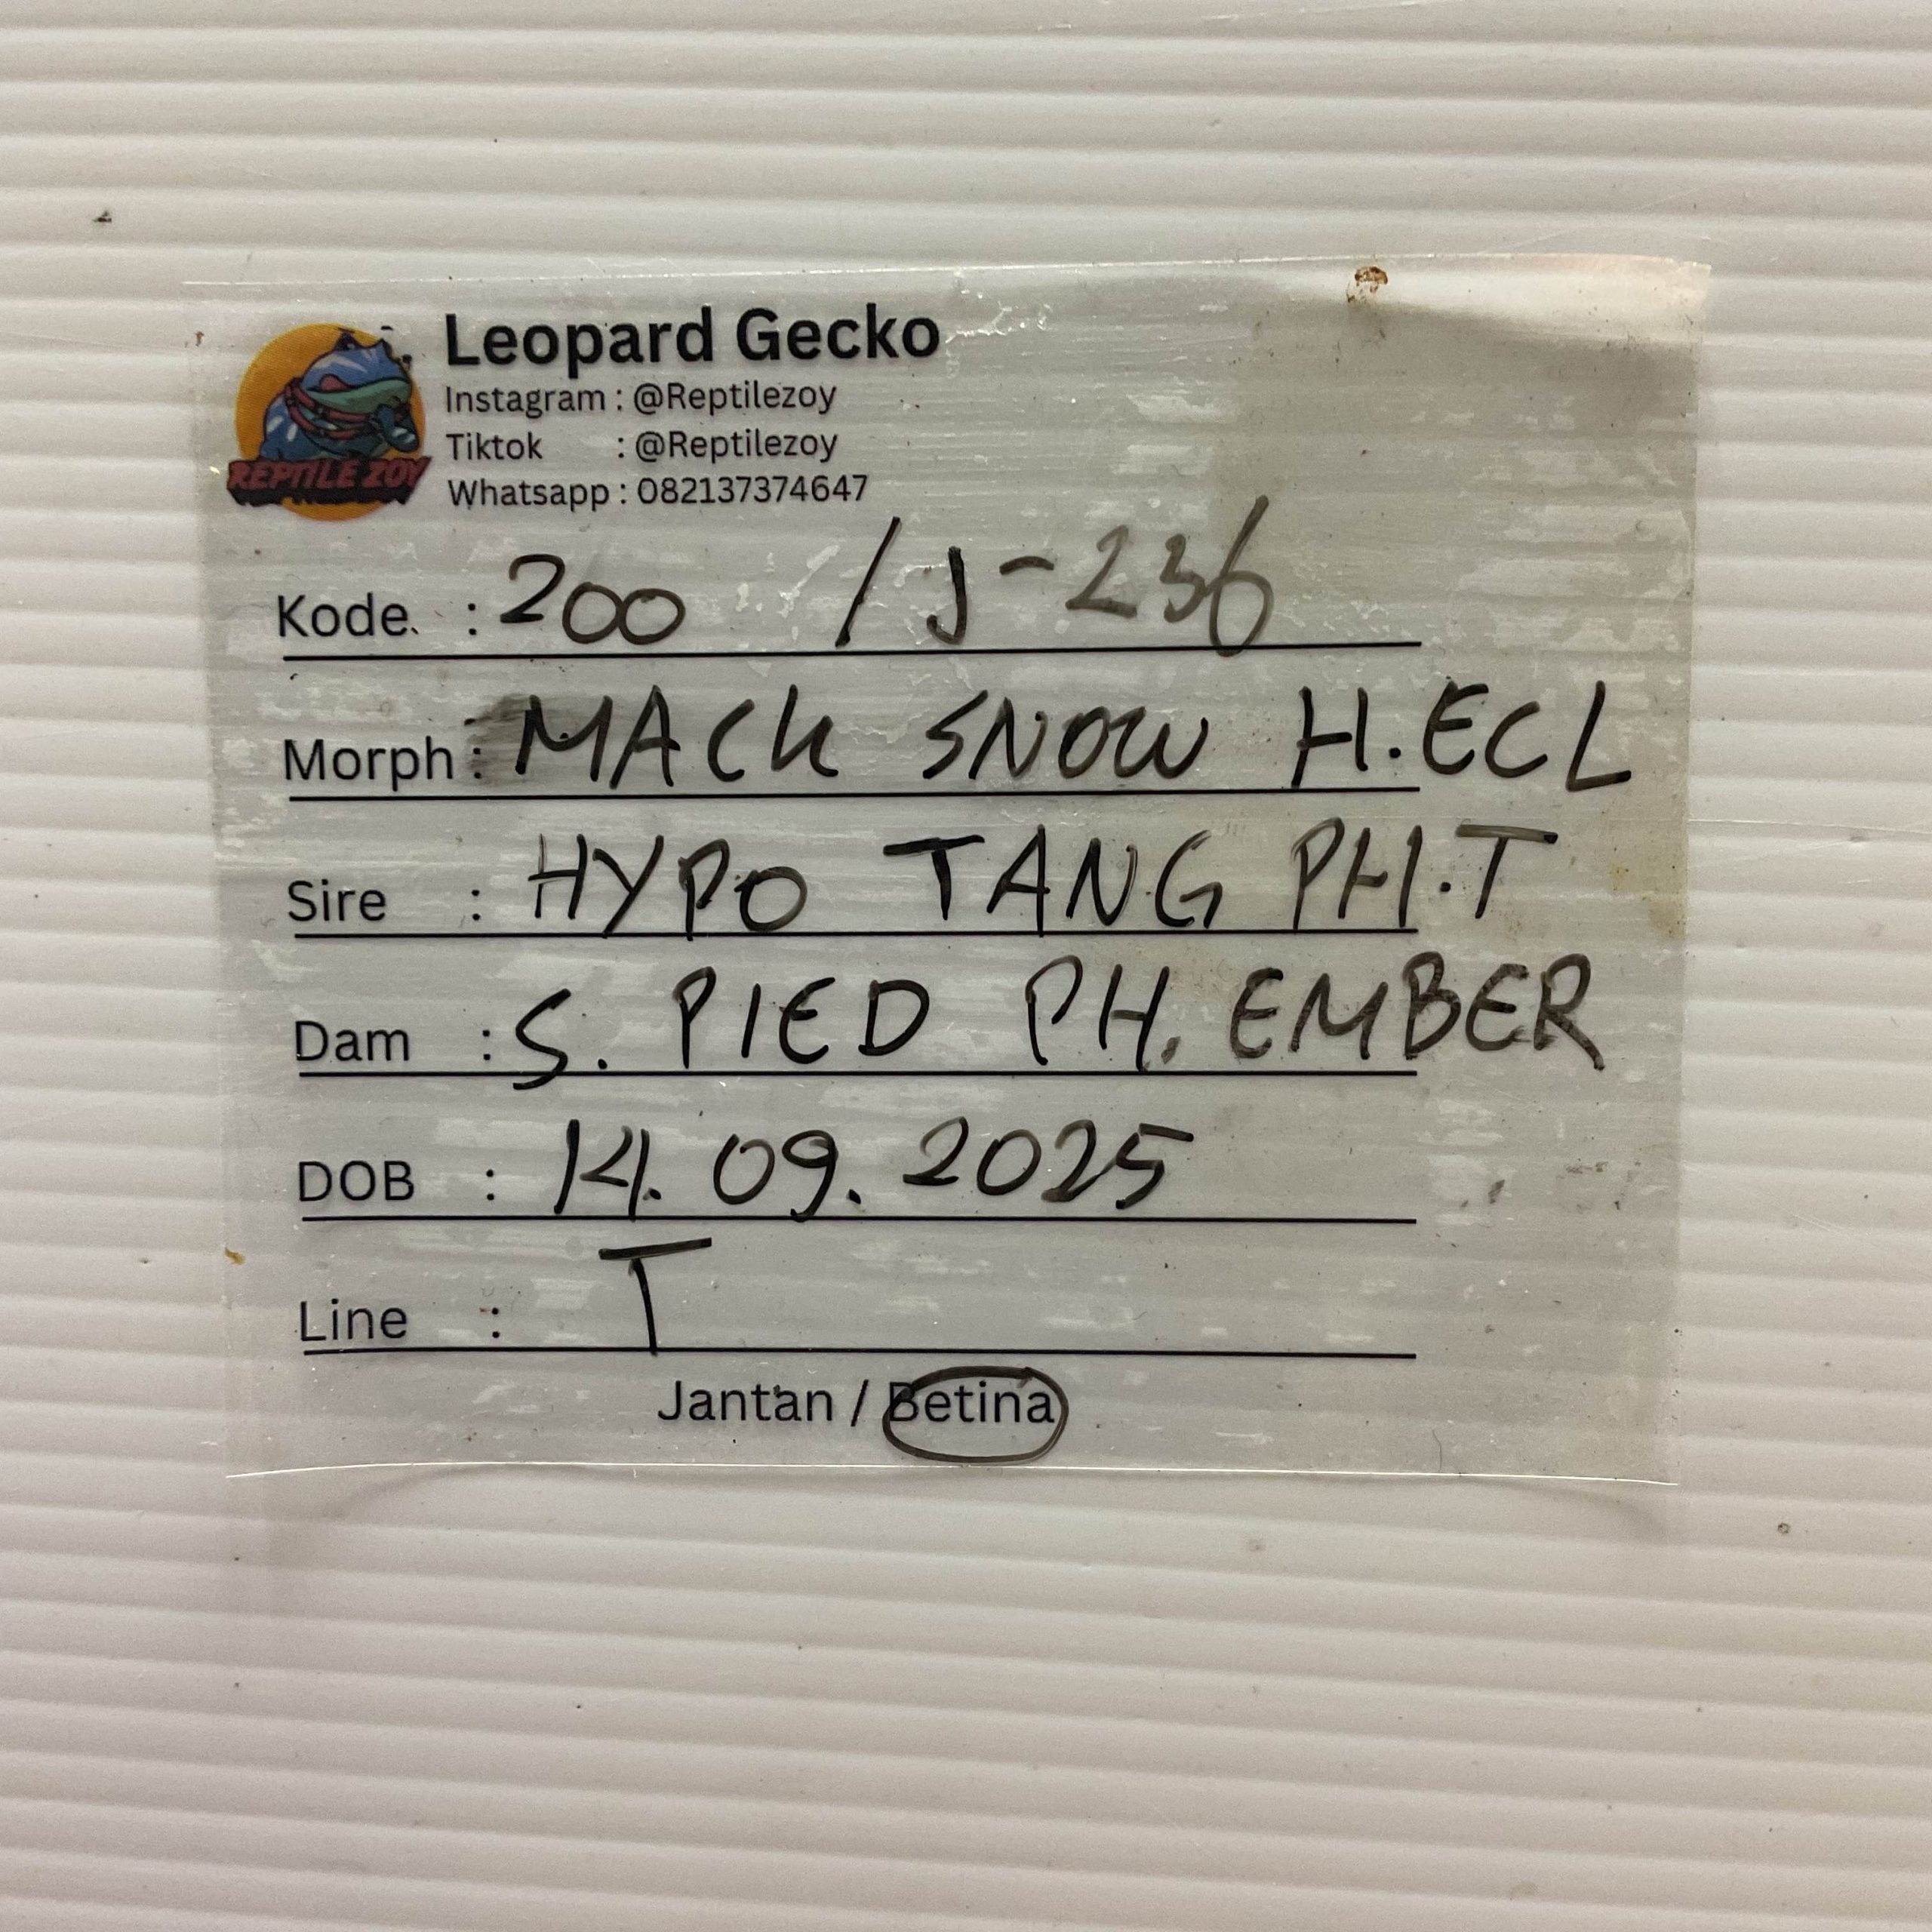 Leopard Gecko
Instagram : @Reptilezoy
Tiktok : @Reptilezoy
Whatsapp : 082137374647
REPTILE ZOY
Kode : 200 / J-236
Morph : MACK SNOW H.ECL
Sire : HYPO TANG PH.T
Dam : S. PIED PH. EMBER
DOB : 14. 09. 2025
Line : T
Jantan / Betina